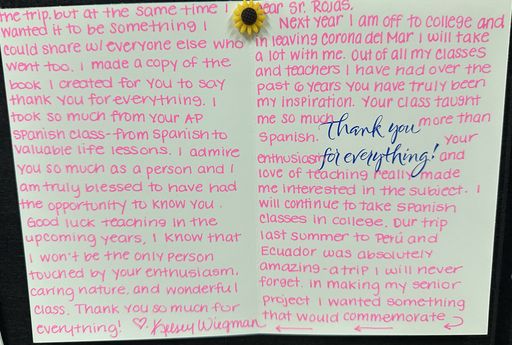 Dear Sr. Rojas,
Next year I am off to college and
in leaving Corona del Mar I will take
a lot with me. Out of all my classes
and teachers I have had over the
past 6 years you have truly been
my inspiration. Your class taught
me so much more than
Spanish. Your
enthusiasm and
love of teaching really made
me interested in the subject. I
will continue to take Spanish
classes in college. Our trip
last summer to Perú and
Ecuador was absolutely
amazing-a trip I will never
forget. In making my senior
project I wanted something
that would commemorate
Thank you
for everything!
the trip, but at the same time I
wanted it to be something I
could share w/ everyone else who
went too. I made a copy of the
book I created for you to say
thank you for everything. I
took so much from your AP
Spanish class-from Spanish to
valuable life lessons. I admire
you so much as a person and I
am truly blessed to have had
the opportunity to know you.
Good luck teaching in the
upcoming years, I know that
I won't be the only person
touched by your enthusiasm,
caring nature, and wonderful
class. Thank you so much for
everything! ♡ Kelsey Wiegman